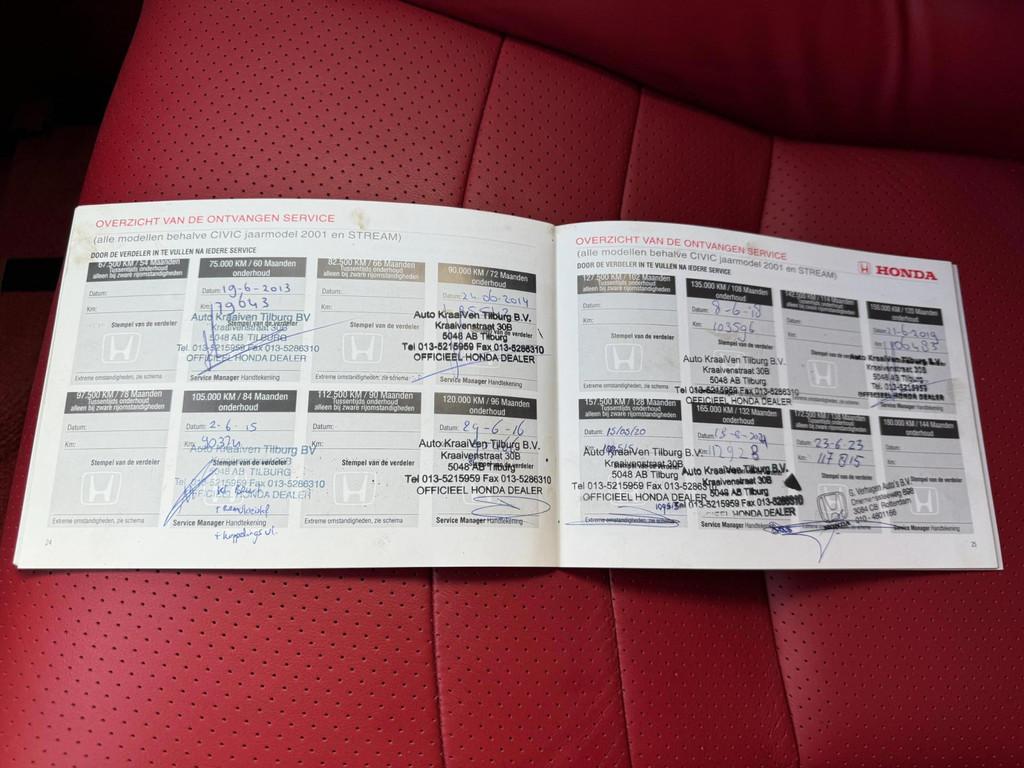 OVERZICHT VAN DE ONTVANGEN SERVICE
(alle modellen behalve CIVIC jaarmodel 2001 en STREAM)
DOOR DE VERDELER IN TE VULLEN NA IEDERE SERVICE
67.500 KM / 54 Maanden
Tussentijds onderhoud
alleen bij zware rijomstandigheden
Datum:
Km:
Stempel van de verdeler
Extreme omstandigheden, zie schema
75.000 KM / 60 Maanden
onderhoud
Datum: 19-6-2013
Km: 79643
Stempel van de verdeler
Auto KraaiVen Tilburg BV
Kraaivenstraat 30B
5048 AB TILBURG
Tel. 013-5215959 Fax 013-5286310
OFFICIEEL HONDA DEALER
Service Manager Handtekening
82.500 KM / 66 Maanden
Tussentijds onderhoud
alleen bij zware rijomstandigheden
Datum:
Km:
Stempel van de verdeler
Extreme omstandigheden, zie schema
90.000 KM / 72 Maanden
onderhoud
Datum: 24-06-2014
Auto KraaiVen Tilburg B.V.
Kraaivenstraat 30B
5048 AB Tilburg
Tel 013-5215959 Fax 013-5286310
OFFICIEEL HONDA DEALER
Service Manager Handtekening
97.500 KM / 78 Maanden
Tussentijds onderhoud
alleen bij zware rijomstandigheden
Datum:
Km:
Stempel van de verdeler
Extreme omstandigheden, zie schema
105.000 KM / 84 Maanden
onderhoud
Datum: 2-6-15
Km:
Stempel van de verdeler
Auto KraaiVen Tilburg BV
5048 AB TILBURG
Tel. 013-5215959 Fax 013-5286310
OFFICIEEL HONDA DEALER
Service Manager Handtekening
112.500 KM / 90 Maanden
Tussentijds onderhoud
alleen bij zware rijomstandigheden
Datum:
Km:
Stempel van de verdeler
Extreme omstandigheden, zie schema
120.000 KM / 96 Maanden
onderhoud
Datum: 24-6-16
Auto KraaiVen Tilburg B.V.
Kraaivenstraat 30B
5048 AB Tilburg
Tel 013-5215959 Fax 013-5286310
OFFICIEEL HONDA DEALER
Service Manager Handtekening
24
OVERZICHT VAN DE ONTVANGEN SERVICE
(alle modellen behalve CIVIC jaarmodel 2001 en STREAM)
DOOR DE VERDELER IN TE VULLEN NA IEDERE SERVICE
HONDA
127.500 KM / 102 Maanden
Tussentijds onderhoud
alleen bij zware rijomstandigheden
Datum:
Km:
Stempel van de verdeler
135.000 KM / 108 Maanden
onderhoud
Datum: 8-6-18
Km: 103596
Stempel van de verdeler
Auto KraaiVen Tilburg B.V.
Kraaivenstraat 30B
5048 AB Tilburg
Tel 013-5215959 Fax 013-5286310
OFFICIEEL HONDA DEALER
Datum:
Km:
Stempel van de verdeler
onderhoud
Datum: 21-6-2019
Km: 106483
Auto KraaiVen Tilburg B.V.
Kraaivenstraat 30B
5048 AB Tilburg
Tel. 013-5215959
OFFICIEEL HONDA DEALER
157.500 KM / 126 Maanden
Tussentijds onderhoud
alleen bij zware rijomstandigheden
Datum: 15/05/20
Km:
Auto KraaiVen Tilburg B.V.
Kraaivenstraat 30B
5048 AB Tilburg
Tel 013-5215959 Fax 013-5286310
OFFICIEEL HONDA DEALER
Extreme omstandigheden, zie schema
165.000 KM / 132 Maanden
onderhoud
Auto KraaiVen Tilburg B.V.
Kraaivenstraat 30B
5048 AB Tilburg
Service Manager Handtekening
Datum: 23-6-23
Km: 117815
Stempel van de verdeler
180.000 KM / 144 Maanden
onderhoud
Datum:
Km:
S. Verhagen Auto's B.V.
3084 CB Rotterdam
010-4801166
Service Manager Handtekening
25